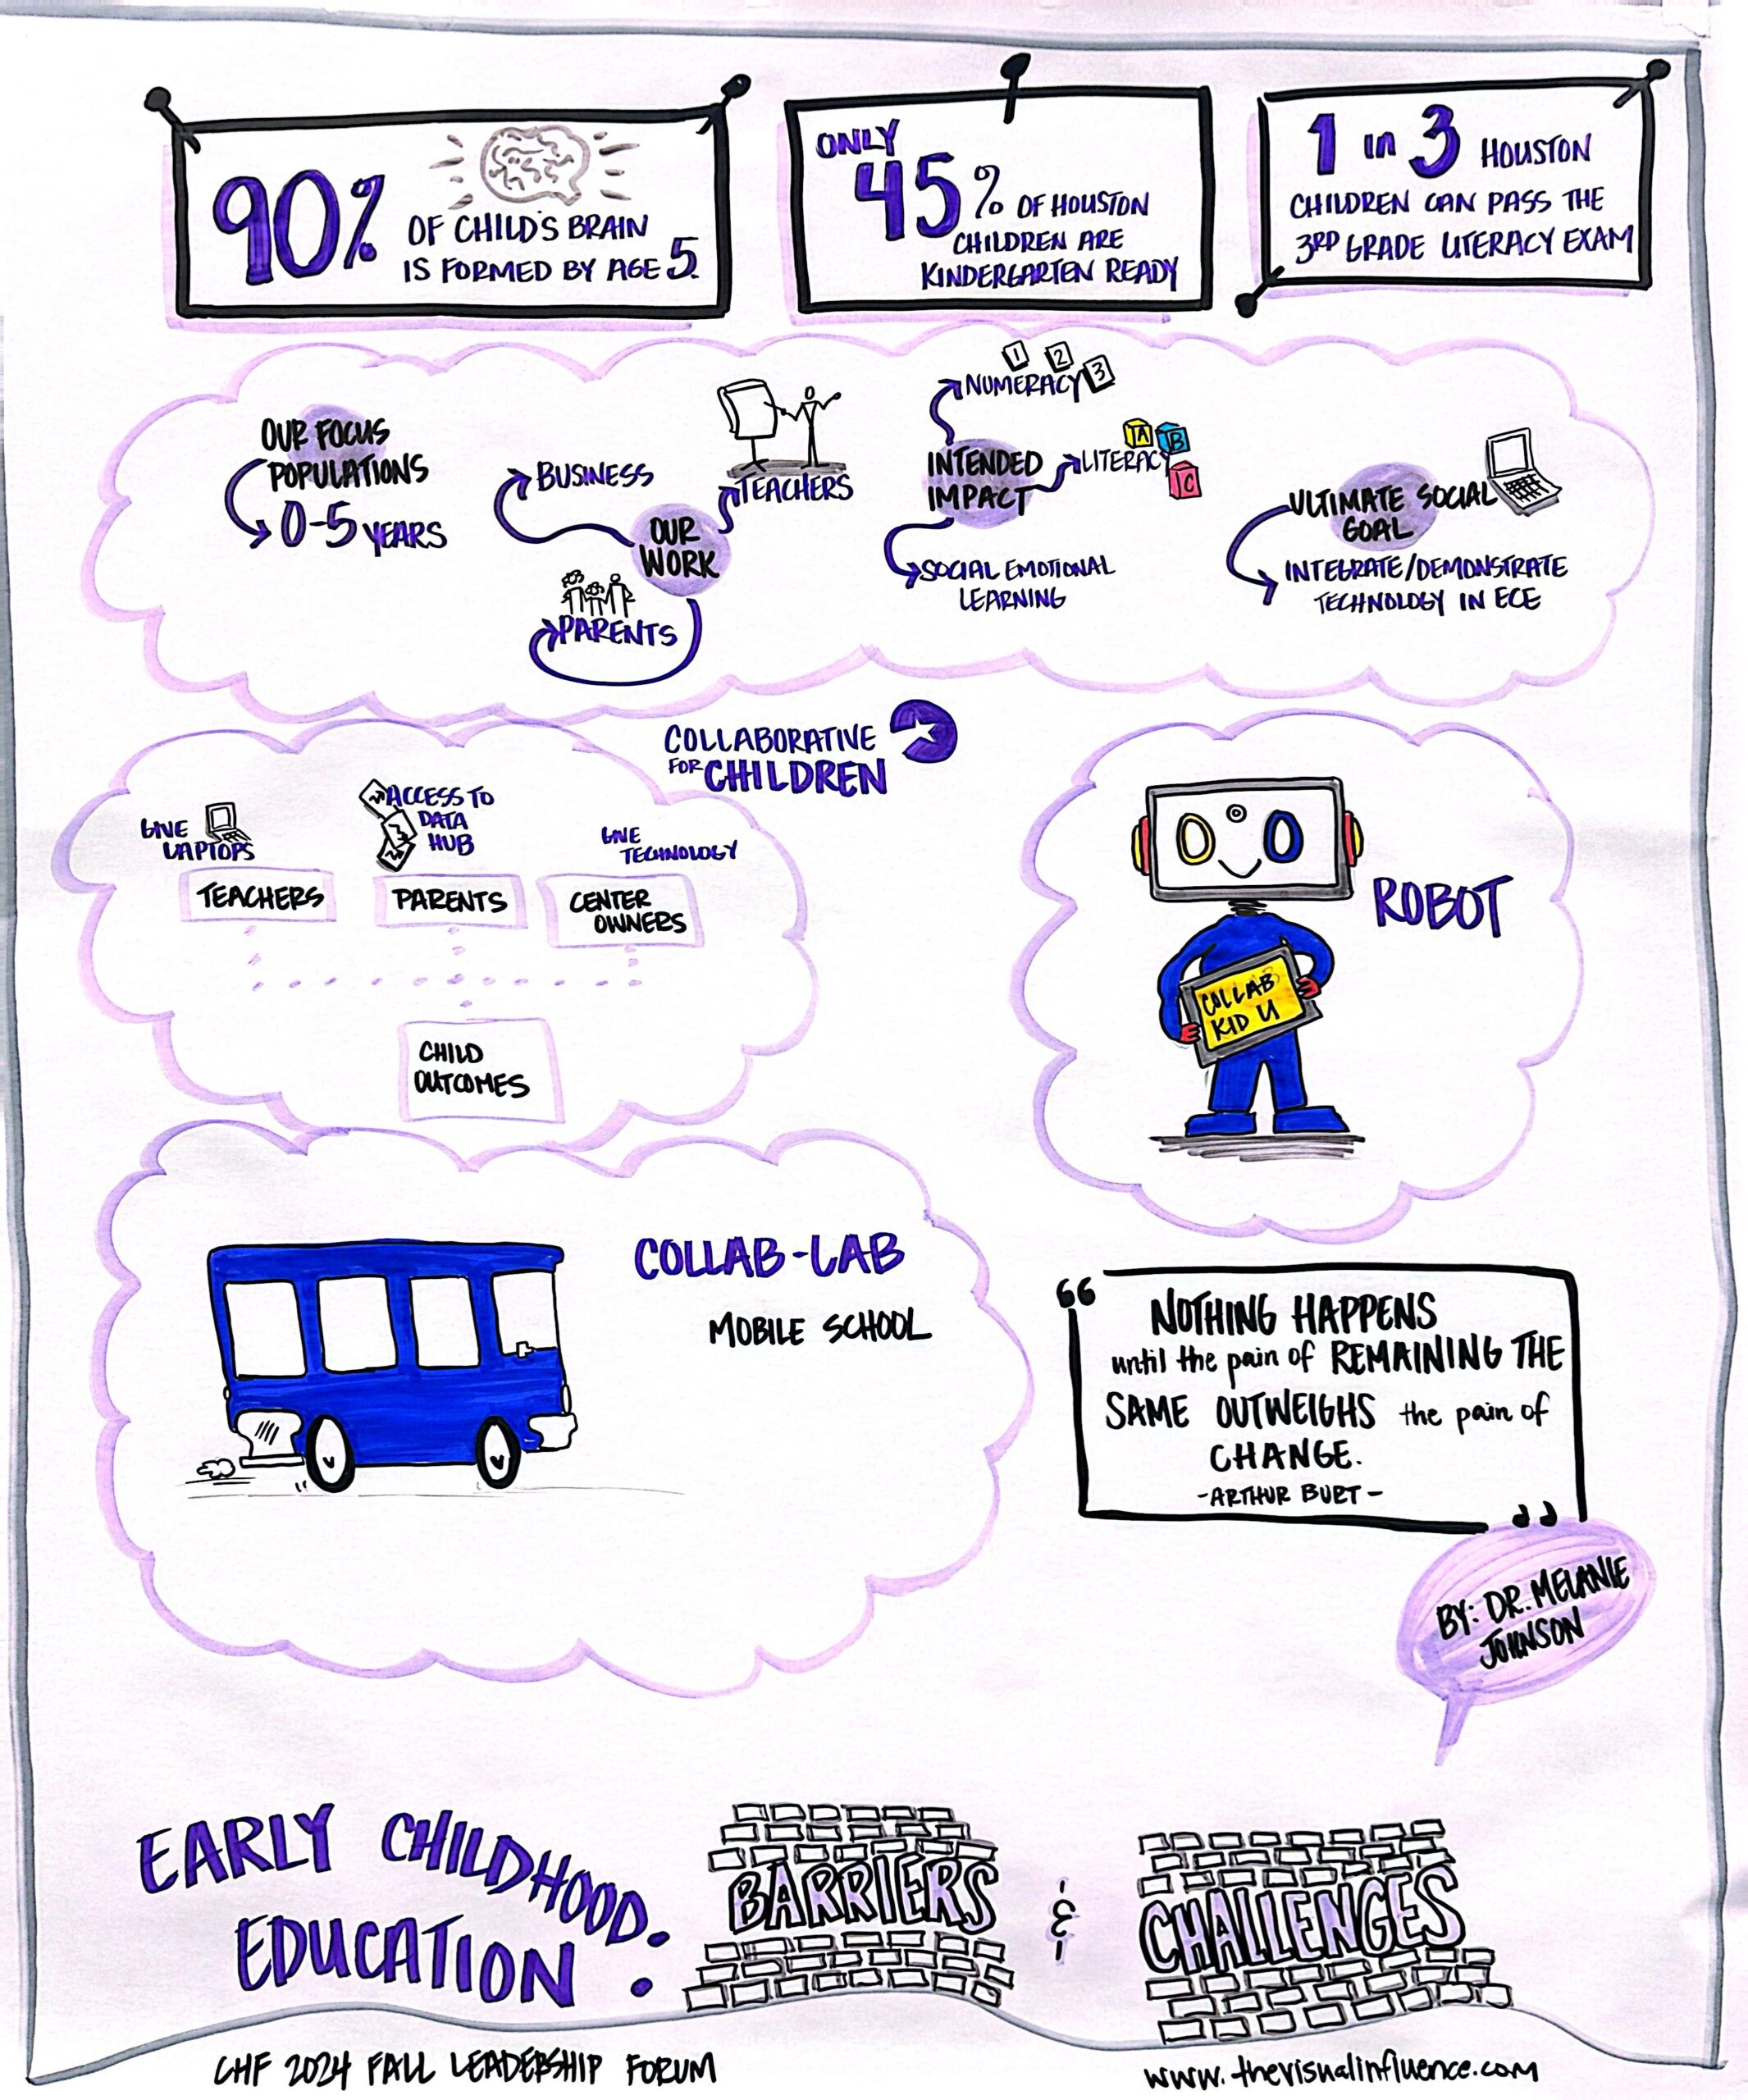 90%
OF CHILD'S BRAIN
IS FORMED BY AGE 5.
ONLY
45%
OF HOUSTON
CHILDREN ARE
KINDERGARTEN READY
1 in 3 HOUSTON
CHILDREN CAN PASS THE
3RD GRADE LITERACY EXAM
OUR FOCUS
POPULATIONS
0-5 YEARS
BUSINESS
TEACHERS
OUR
WORK
PARENTS
1 2 3
NUMERACY
INTENDED
IMPACT
LITERACY
A B C
SOCIAL EMOTIONAL
LEARNING
ULTIMATE SOCIAL
GOAL
INTEGRATE/DEMONSTRATE
TECHNOLOGY IN ECE
COLLABORATIVE
FOR CHILDREN
GIVE
LAPTOPS
TEACHERS
ACCESS TO
DATA
HUB
PARENTS
GIVE
TECHNOLOGY
CENTER
OWNERS
CHILD
OUTCOMES
ROBOT
COLLAB
KID U
COLLAB-LAB
MOBILE SCHOOL
“ NOTHING HAPPENS
until the pain of REMAINING THE
SAME OUTWEIGHS the pain of
CHANGE.
-ARTHUR BURT-
”
BY: DR. MELANIE
JOHNSON
EARLY CHILDHOOD
EDUCATION:
BARRIERS
&
CHALLENGES
CHF 2024 FALL LEADERSHIP FORUM
www.thevisualinfluence.com